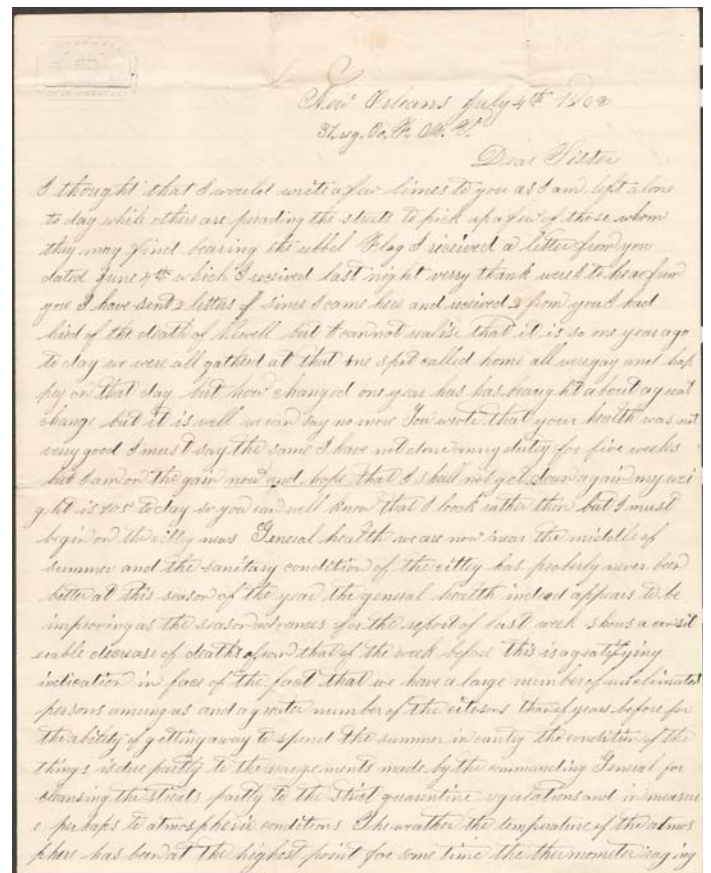 New Orleans July 4th 1862
31, reg, Co, F. M. V.
Dear Sister
I thought that I would write a few lines to you as I am left alone
to day while others are perading the streets to pick up a few of those whom
they may find bearing the rebbel Flag I received a letter from you
dated June 4th which I received last night verry thank were I to hear from
you I have sent 2 letters since I came here and received 2 from you I had
hird of the death of but I can not realise that it is so one year ago
to day we were all gatherd at that one spot called home all were gay and hap
pey on that day but how changed one year has has braught about a great
change but it is well we can say no more You wrote that your health was not
very good I must say the same I have not done anny duty for five weeks
but I am on the gain now and hope that I shall not get down again my wei
ght is 105 to day so you can well know that I look rather thin but I must
begin on the citty news General health we are now near the middle of
summer and the sanitary condition of the cittey has proberly never been
better at this season of the year the general health indeed appears to be
improving as the season advances for the report of last week shows a consid
erable decrease of deaths from that of the week before this is a gratifying
indication in face of the fact that we have a large number of unclimated
persons among us and a greater number of the citesons than of years before for
the ability of getting away to spend the summer in cuntry the condition of the
things is due partly to the arrangements made by the commanding General for
cleansing the streets partly to the strict quarentine regulations and in measure
perhaps to atmospheric conditions The wrather the temperature of the atmos
phere has been at the highest point for some time the thermometer raging